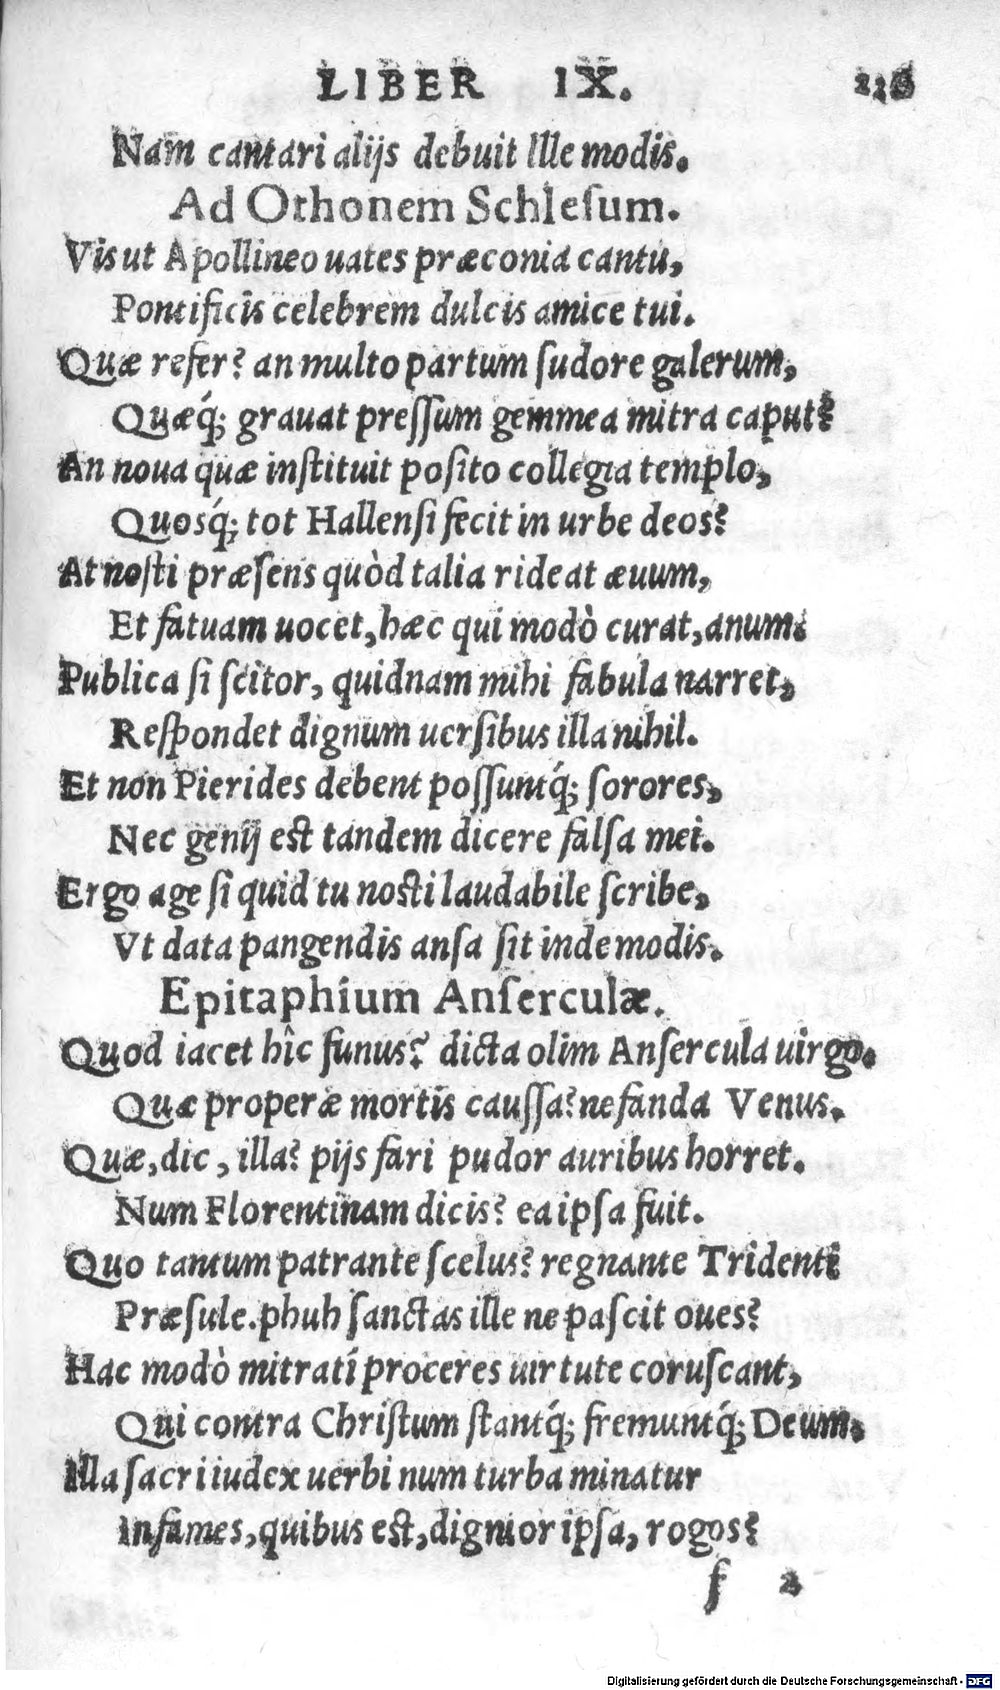 LIBER IX.
Nam cantari alijs debuit Ille modis.
Ad Othonem Schlesum.
Vis ut Apollineo uates præconia cantu,
Pontificis celebrem dulcis amice tui.
Quæ refer? an multo partum ſudore galerum,
Quæq́; grauat preſſum gemmea mitra caput?
An noua quæ inſtituit poſito collegia templo,
Quosq́; tot Hallenſi fecit in urbe deos?
At noſti præſens quòd talia rideat æuum,
Et fatuam uocet, hæc qui modò curat, anum.
Publica ſi ſcitor, quidnam mihi fabula narret,
Reſpondet dignum uerſibus illa nihil.
Et non Pierides debent poſſuntq́; ſorores,
Nec genij eſt tandem dicere falſa mei.
Ergo age ſi quid tu noſti laudabile ſcribe,
Vt data pangendis anſa ſit inde modis.
Epitaphium Anſerculæ.
Quod iacet hîc funus? dicta olim Anſercula uirgo.
Quæ properæ mortis cauſſa? nefanda Venus.
Quæ, dic, illa? pijs fari pudor auribus horret.
Num Florentinam dicis? ea ipſa fuit.
Quo tantum patrante ſcelus? regnante Tridenti
Præſule. phuh ſanctas ille ne paſcit oues?
Hac modò mitrati proceres uirtute coruſcant,
Qui contra Chriſtum ſtantq́; fremuntq́; Deum.
Illa ſacri iudex uerbi num turba minatur
Infames, quibus eſt, dignior ipſa, rogos?
f 2
Digitalisierung gefördert durch die Deutsche Forschungsgemeinschaft - DFG